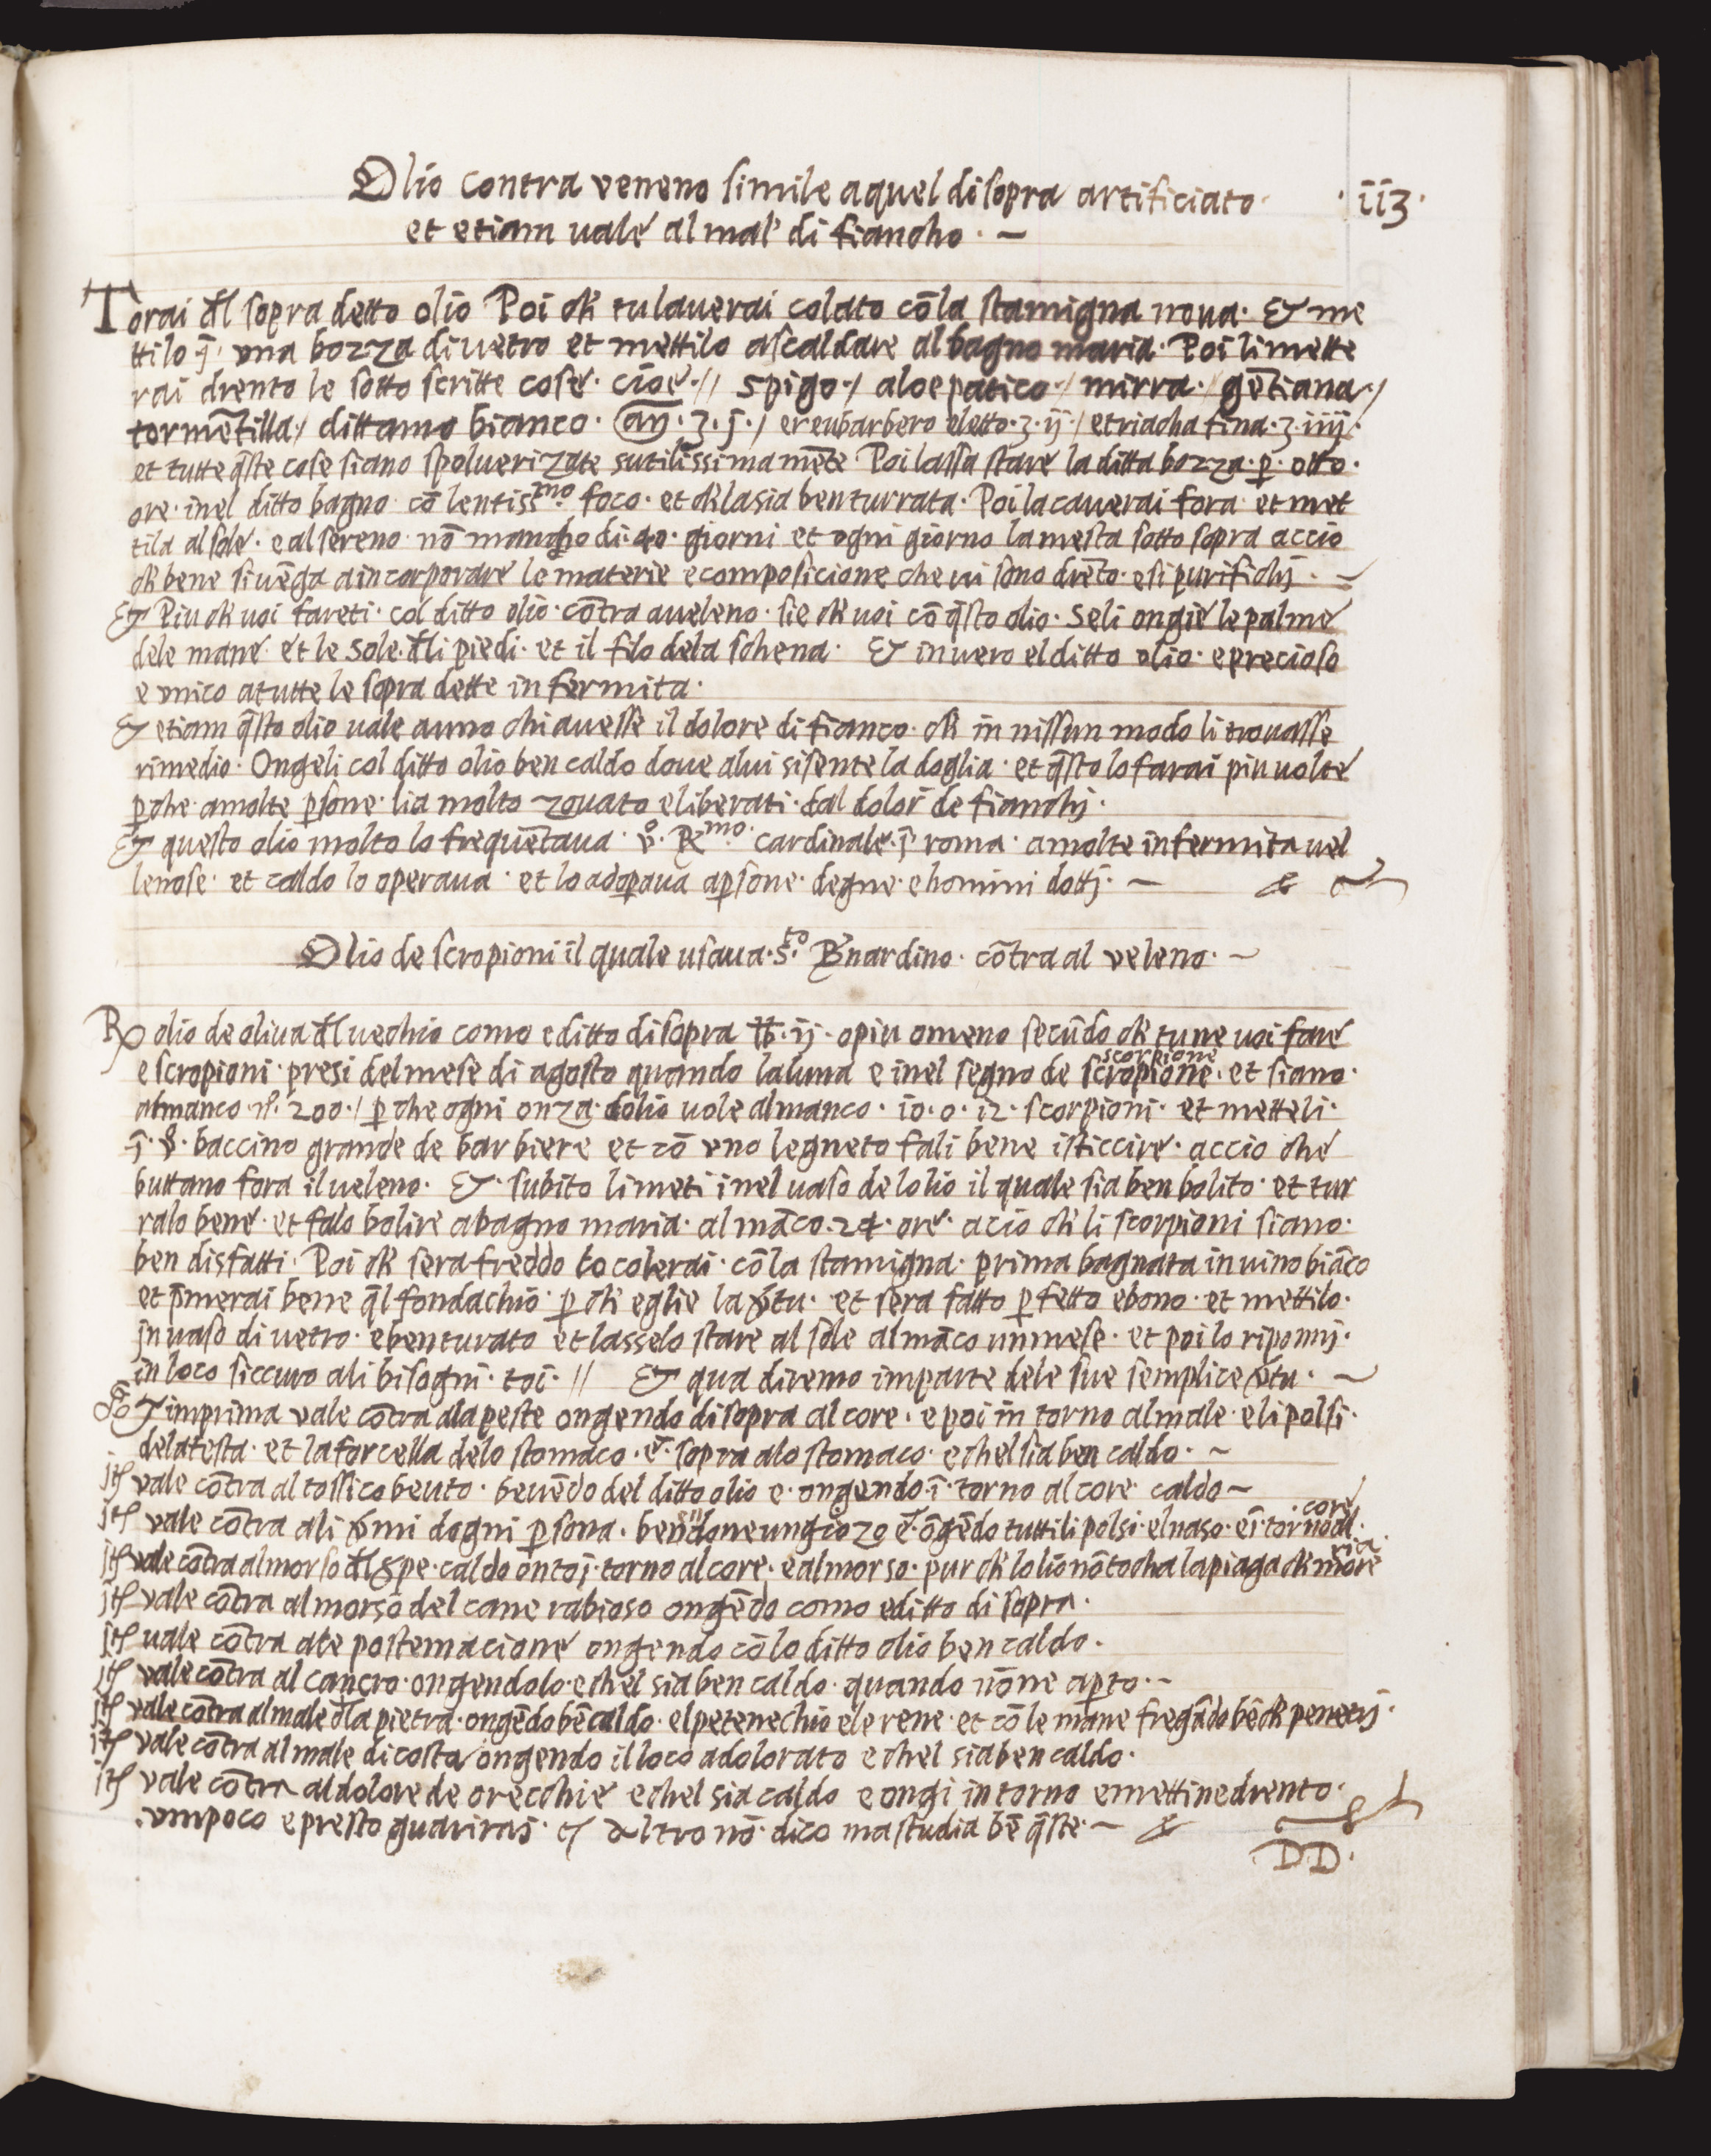 Olio contra veneno simile aquel disopra artificiato· ·113·
et etiam uale al mal' di fiancho· ~
Torai dl sopra detto olio Poi ch' tulauerai colato cō la stamigna noua· Et me
ttilo ī· vna bozza di uetro et mettilo ascaldare al bagno maria· Poi li mette
rai drento le sotto scritte cose· cioe·// spigo·/ aloepatico·/ mirra·/ gētiana·/
tormētilla·/ dittamo bianco· aņ·ʒ·j·/ ereubarbero eletto·ʒ·ij·/ etriacha fina·ʒ·iiij·
et tutte q̄ste cose siano spoluerizate sutilissimamēte Poi lassa stare la ditta bozza·p̱·otto·
ore· inel ditto bagno· cō lentissᵐᵒ· foco· et ch' la sia ben turrata· Poi la cauerai fora et met
tila al sole· e al sereno· nō mancho di·40· giorni et ogni giorno la mesta sotto sopra accio
ch' bene si uēga a incorporare le materie e composicione che ui sono drēto· e si purifichj·~
Et Piu ch' uoi fareti· col ditto olio· cōtra aueleno· sie ch' uoi cō q̄sto olio· Seli ongie le palme
dele mane· et le sole· dli piedi· et il filo dela schena· Et in uero el ditto olio· e precioso
e vnico a tutte le sopra dette infermita·
Et etiam q̄sto olio uale auno chi auesse il dolore di fianco· ch' in nissun modo li trouasse
rimedio· Ongeli col ditto olio ben caldo doue alui si sente la doglia· et q̄sto lo farai piu uolte
p̱che· a molte p̱sone· lia molto zouato e liberati· dal dolor' de fianchj·
Et questo olio molto lo frequētaua· v̊· Rᵐᵒ· cardinale· ī roma· a molte infermita uel
lenose· et caldo lo operaua· et lo adop̱aua a p̱sone· degne· e homini dottj·~ &
Olio de scropioni il quale usaua·Sᵗᵒ· B̄nardino· cōtra al veleno·~
℞ olio de oliua dl uechio como e ditto di sopra ℔·ij· o piu o meno secūdo ch' tu ne uoi fare
e scropioni· presi del mese di agosto quando la luna e inel segno de scropione· et siano·
scorpione
almanco nº· 200·/ p̱ che ogni onza dolio uole almanco· 10· o· 12· scorpioni· et metteli·
ī· v̊· baccino grande de barbiere et cō vno legneto fali bene isticcire· accio che
buttano fora il ueleno· Et· subito li meti inel uaso de lolio il quale sia ben bolito· et tur
ralo bene· et falo bolire a bagno maria· al māco·24· ore· acio ch' li scorpioni siano·
ben disfatti· Poi ch' sera freddo lo colerai· cō la stamigna· prima bagnata in uino biāco
et p̄merai bene q̄l fondachio· p̱ ch' eglie la v̄tu· et sera fatto p̱fetto e bono· et mettilo·
in uaso di uetro· e ben turato et lasselo stare al sole al māco un mese· et poi lo riponnj·
in loco siccuro ali bisogni· toi·// Et qua diremo imparte dele sue semplice v̄tu·~
Et imprima vale cōtra ala peste ongendo di sopra al core· e poi in torno al male· e li polsi·
dela testa· et la forcella delo stomaco· e· sopra alo stomaco· e chel sia ben caldo·~
jtē vale cōtra al tossico beuto· beuēdo del ditto olio e· ongendo·ī· torno al core caldo~
jtē vale cōtra ali v̄mi dogni p̱sona· ē ōgēdo tuttili polsi· el naso· eī· torno al·
core
jtē vale cōtra al morso dl v̄pe· caldo onto ī· torno al core· e al morso· pur ch' lolio nō tocha la piaga ch' more
ria
jtē vale cōtra al morso del cane rabioso ongēdo como e ditto di sopra·
jtē uale cōtra ale postemacione ongendo cō lo ditto olio ben caldo·
jtē vale cōtra al cancro· ongendolo· e chel sia ben caldo· quando nōne ap̱to·~
jtē vale cōtra al male dla pietra· ongēdo bē caldo· el petenechio e le rene· et cō le mane fregādo bē ch' penetrj·
jtē vale cōtra al male di costa ongendo il loco adolorato e chel sia ben caldo·
jtē vale cōtra al dolore de orecchie e chel sia caldo e ongi in torno e mettine drento·
vn poco e presto guarirai· et altro nō· dico ma studia bē q̄ste·~ &
DD·